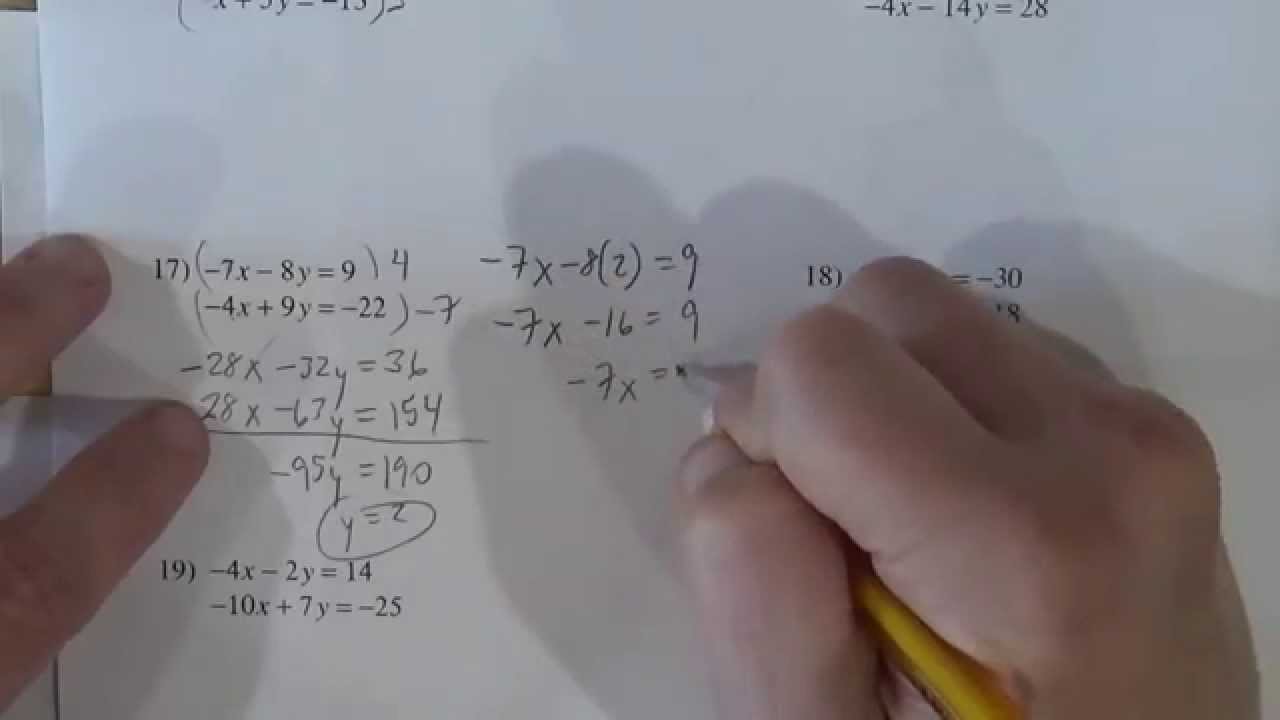 x + 5y = -15
-4x - 14y = 28
17) (-7x - 8y = 9) 4
(-4x + 9y = -22) -7
-28x -32y = 36
28x -63y = 154
-95y = 190
y = 2
-7x -8(2) = 9
-7x -16 = 9
-7x =
18)
= -30
18
19) -4x - 2y = 14
-10x + 7y = -25